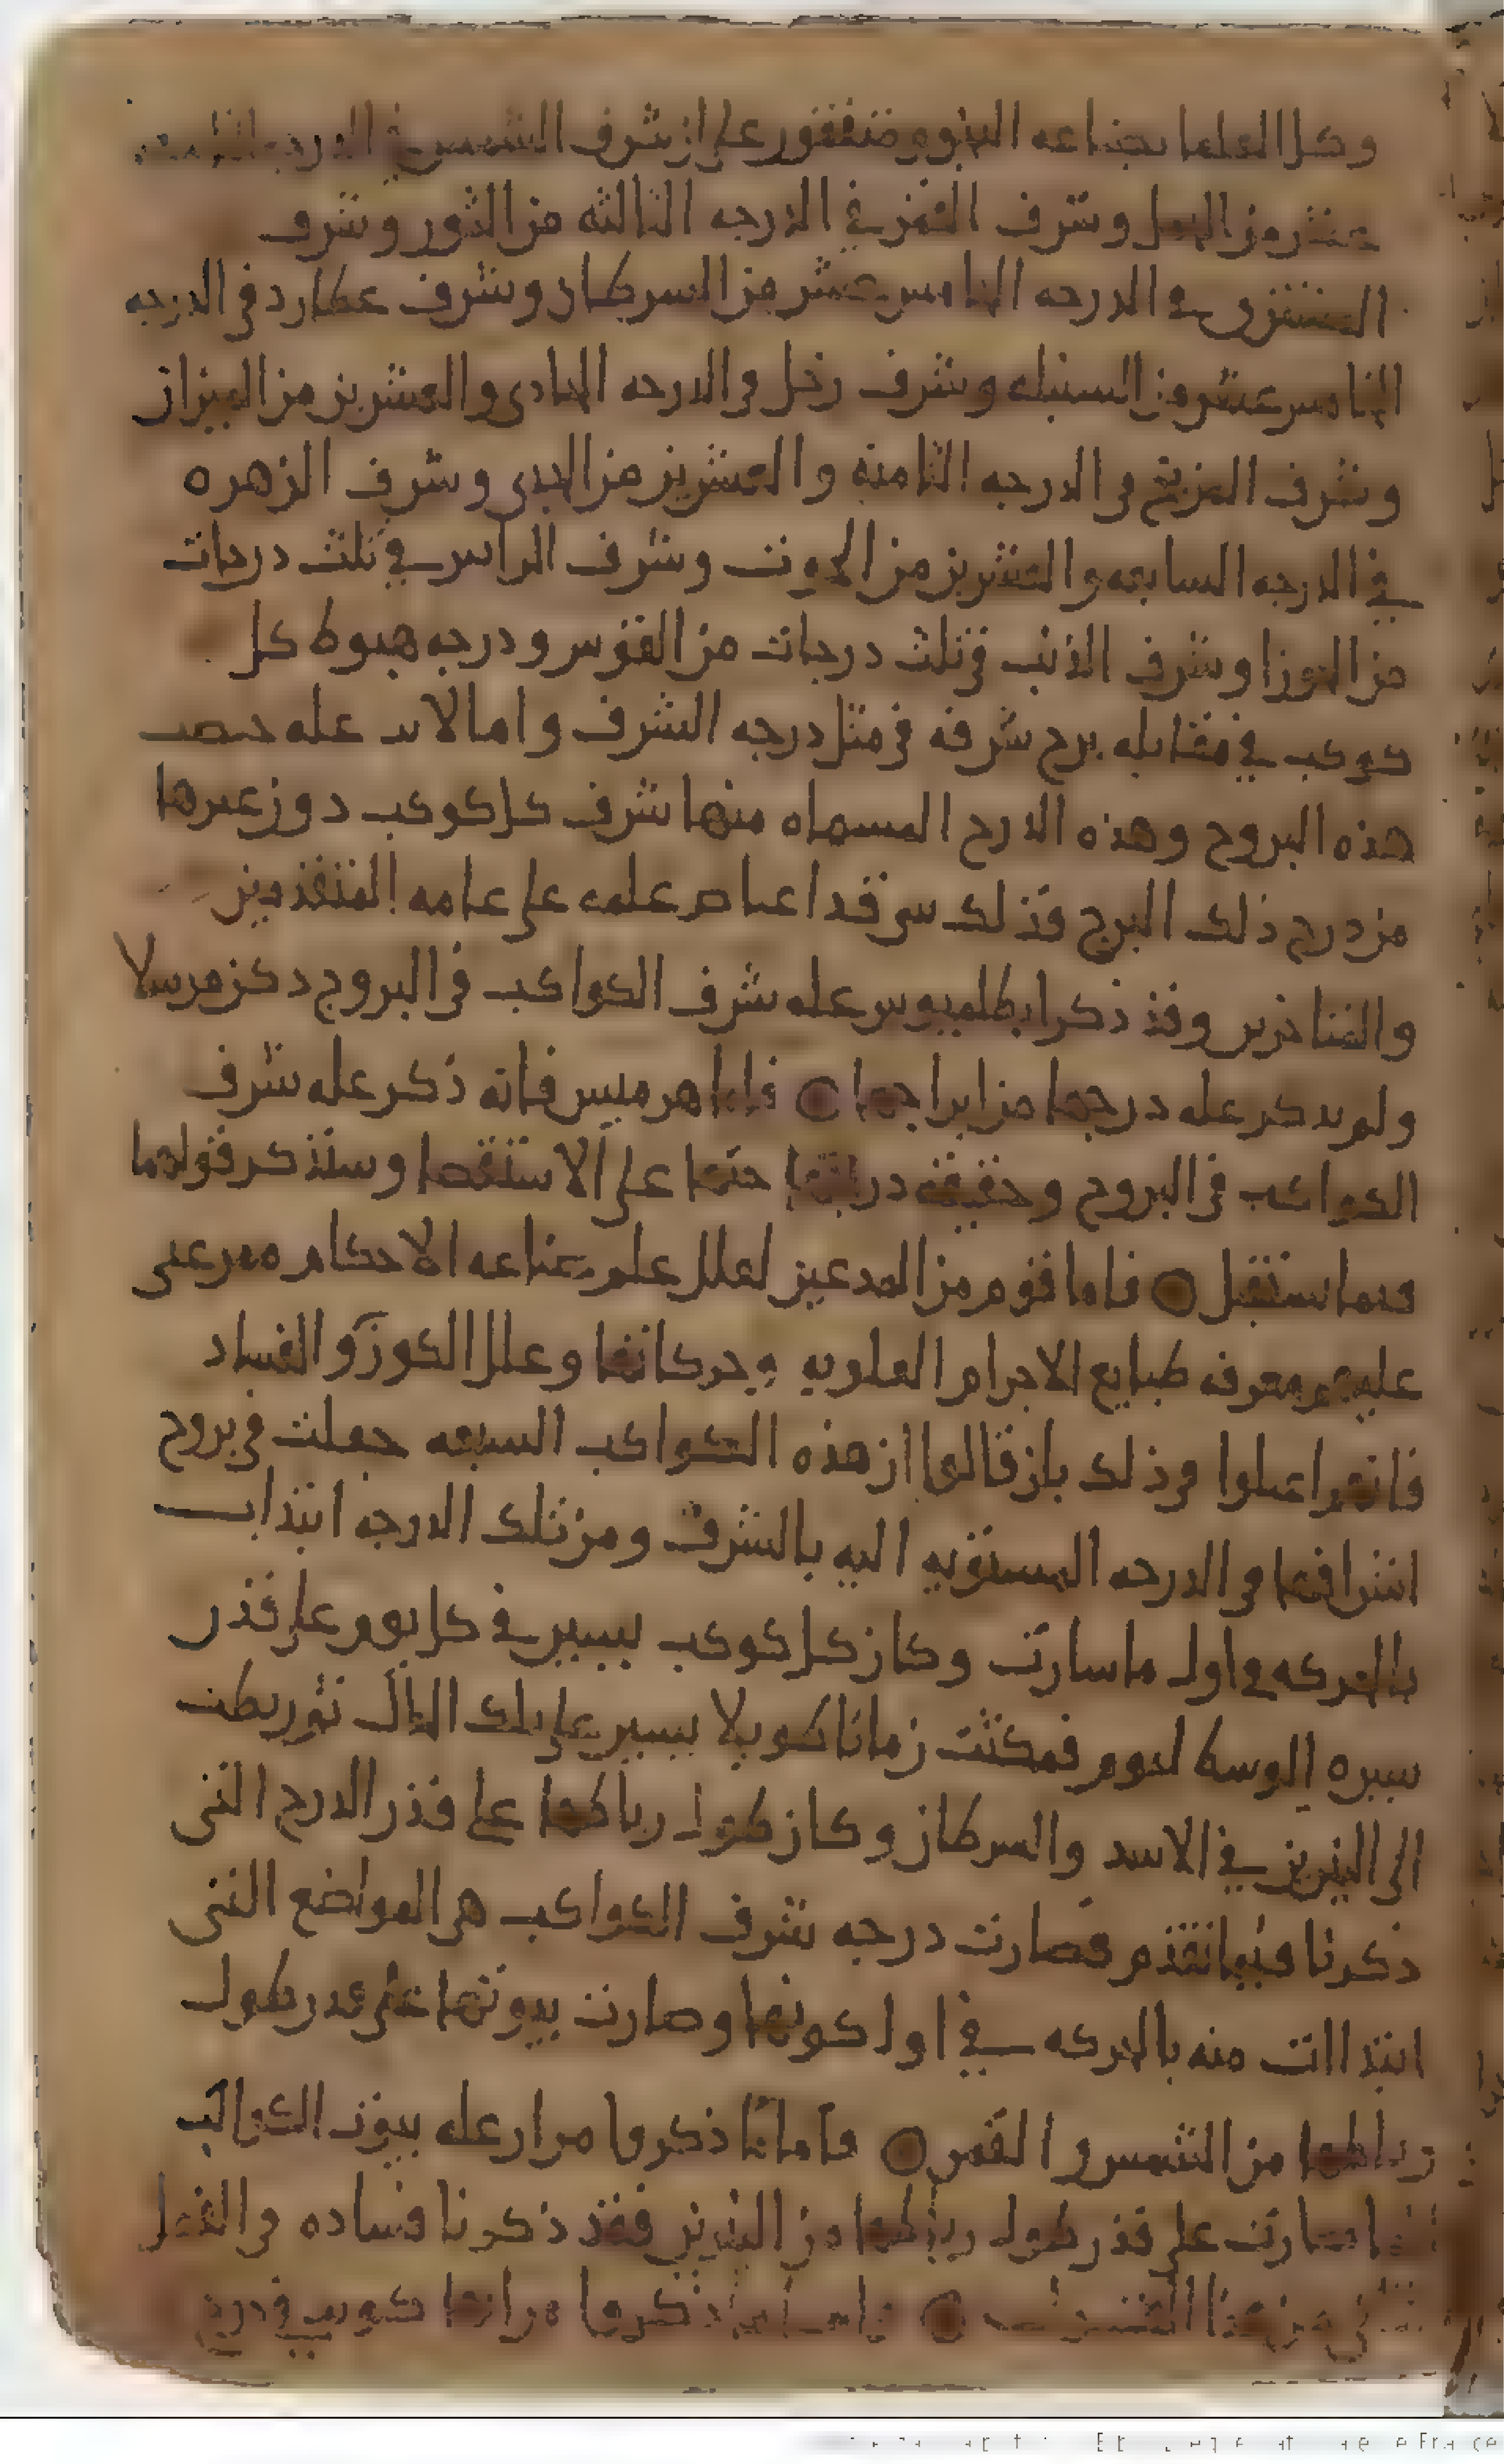 وكل العلما بصناعه النجوم متفقون على ان شرف الشمس في الدرجه التاسعه
عشر من الحمل وشرف القمر في الدرجه الثالثه من الثور وشرف
المشترى في الدرجه الخامس عشر من السرطان وشرف عطارد في الدرجه
الخامس عشر من السنبله وشرف زحل في الدرجه الحادى والعشرين من الميزان
وشرف المريخ في الدرجه الثامنه والعشرين من الجدى وشرف الزهره
في الدرجه السابعه والعشرين من الحوت وشرف الراس في ثلث درجات
من الجوزا وشرف الذنب في ثلث درجات من القوس ودرجه هبوط كل
كوكب في مقابله برج شرفه في مثل درجه الشرف واما لايه عله خصت
هذه البروج وهذه الدرج المسماه منها شرف كل كوكب دون غيرها
من درج ذلك البرج فذلك سى قد اعتاص علمه على عامه المتقدمين
والمتاخرين وقد ذكر ابطلميوس عله شرف الكواكب في البروج ذكرا مرسلا
ولم يذكر عله درجها من ابراجها ○ فاما هرميس فانه ذكر عله شرف
الكواكب في البروج وحقيقه درجاتها حتما على الاستقصا وسنذكر قولهما
فيما نستقبل ○ فاما قوم من المدعين لعلل علم صناعه الاحكام ممن عمى
عليهم معرفه طبايع الاجرام العلويه وحركاتها وعلل الكون والفساد
فانهم اعتلوا في ذلك بان قالوا ان هذه الكواكب السبعه جعلت في بروج
اشرافها في الدرجه المنسوبه اليه بالشرف ومن تلك الدرجه ابتدات
بالحركه في اول ما سارت وكان كل كوكب يسير في كل يوم على قدر
سيره الوسط ليوم فمكثت زمانا طويلا يسير على تلك الحال ثم ربطت
الى النيرين في الاسد والسرطان وكان طول رباطها على قدر الدرج التى
ذكرنا فيما تقدم فصارت درجه شرف الكواكب هى المواضع التى
ابتدات منه بالحركه في اول كونها وصارت بيوتها على قدر طول
رباطها من الشمس والقمر ○ فاما ما ذكروا من ان عله بيوت الكواكب
انها صارت على قدر طول رباطها من النيرين فقد ذكرنا فساده في الفصل